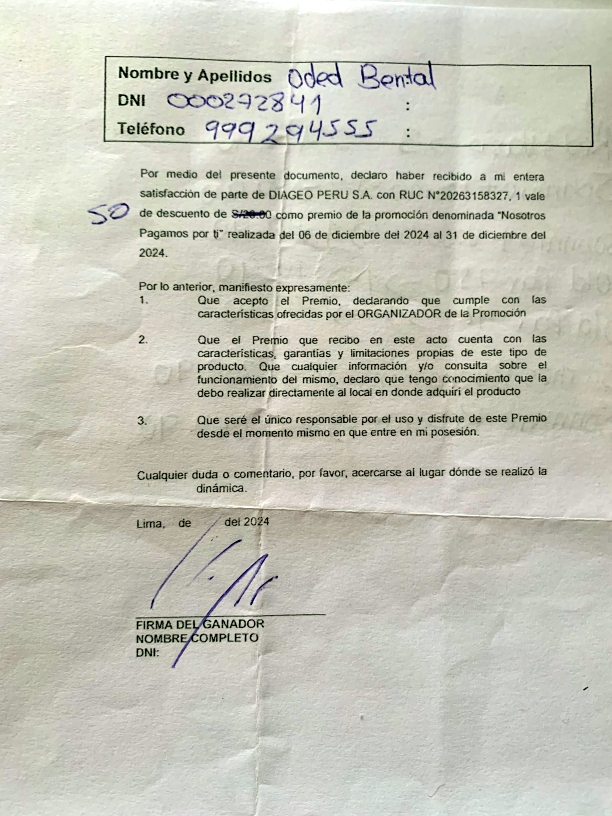 Nombre y Apellidos Oded Bental
DNI 000272841 :
Teléfono 999294555 :
Por medio del presente documento, declaro haber recibido a mi entera
satisfacción de parte de DIAGEO PERU S.A. con RUC N°20263158327, 1 vale
50 de descuento de S/20.00 como premio de la promoción denominada "Nosotros
Pagamos por ti" realizada del 06 de diciembre del 2024 al 31 de diciembre del
2024.
Por lo anterior, manifiesto expresamente:
1. Que acepto el Premio, declarando que cumple con las
características ofrecidas por el ORGANIZADOR de la Promoción
2. Que el Premio que recibo en este acto cuenta con las
características, garantías y limitaciones propias de este tipo de
producto. Que cualquier información y/o consulta sobre el
funcionamiento del mismo, declaro que tengo conocimiento que la
debo realizar directamente al local en donde adquirí el producto
3. Que seré el único responsable por el uso y disfrute de este Premio
desde el momento mismo en que entre en mi posesión.
Cualquier duda o comentario, por favor, acercarse al lugar dónde se realizó la
dinámica.
Lima, de del 2024
FIRMA DEL GANADOR
NOMBRE COMPLETO
DNI: